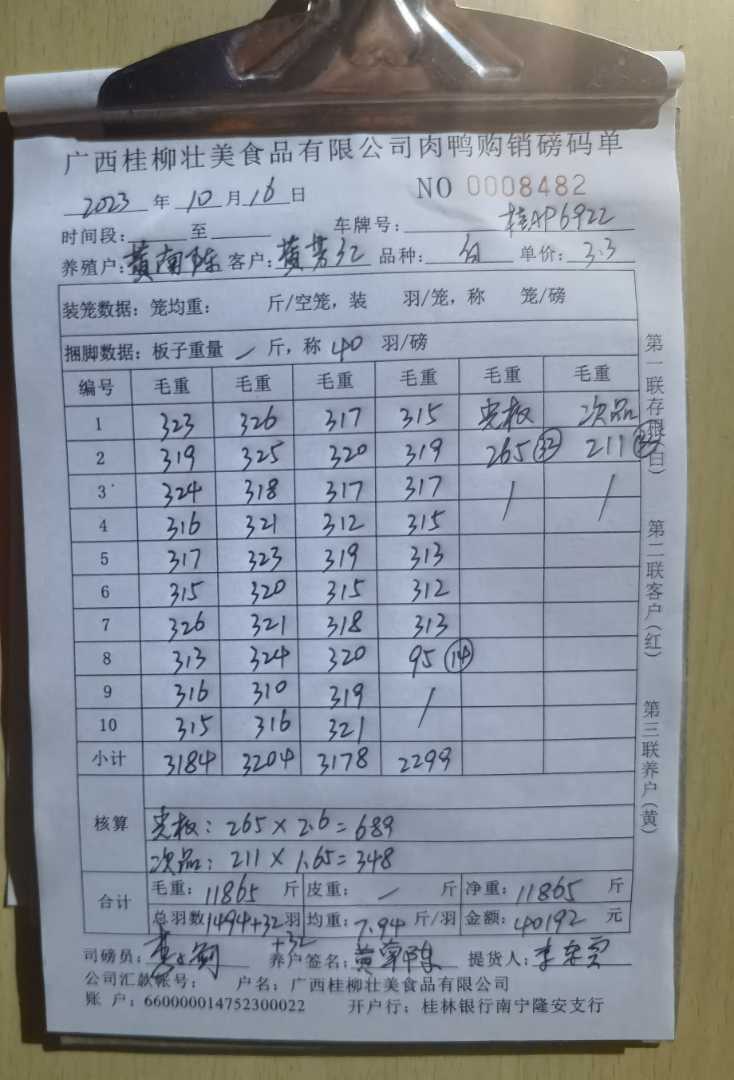 广西桂柳壮美食品有限公司肉鸭购销磅码单
2023 年 10 月 16 日 NO 0008482
时间段: 至 车牌号: 桂AP6922
养殖户: 黄南陈 客户: 黄芳红 品种: 白 单价: 3.3
装笼数据: 笼均重: 斤/空笼, 装 羽/笼, 称 笼/磅
捆脚数据: 板子重量 / 斤, 称 40 羽/磅
编号 毛重 毛重 毛重 毛重 毛重 毛重
1 323 326 317 315 光板 次品
2 319 325 320 319 265 32 211
3 324 318 317 317 / /
4 316 321 312 315
5 317 323 319 313
6 315 320 315 312
7 326 321 318 313
8 313 324 320 95 14
9 316 310 319 /
10 315 316 321
小计 3184 3204 3178 2299
核算
光板: 265 × 2.6 = 689
次品: 211 × 1.65 = 348
合计 毛重: 11865 斤 皮重: / 斤 净重: 11865 斤
总羽数 1494+32 羽 均重: 7.94 斤/羽 金额: 40192 元
+32
司磅员: 养户签名: 提货人:
公司汇款帐号: 户名: 广西桂柳壮美食品有限公司
账 户: 660000014752300022 开户行: 桂林银行南宁隆安支行
第一联存根(白)
第二联客户(红)
第三联养户(黄)